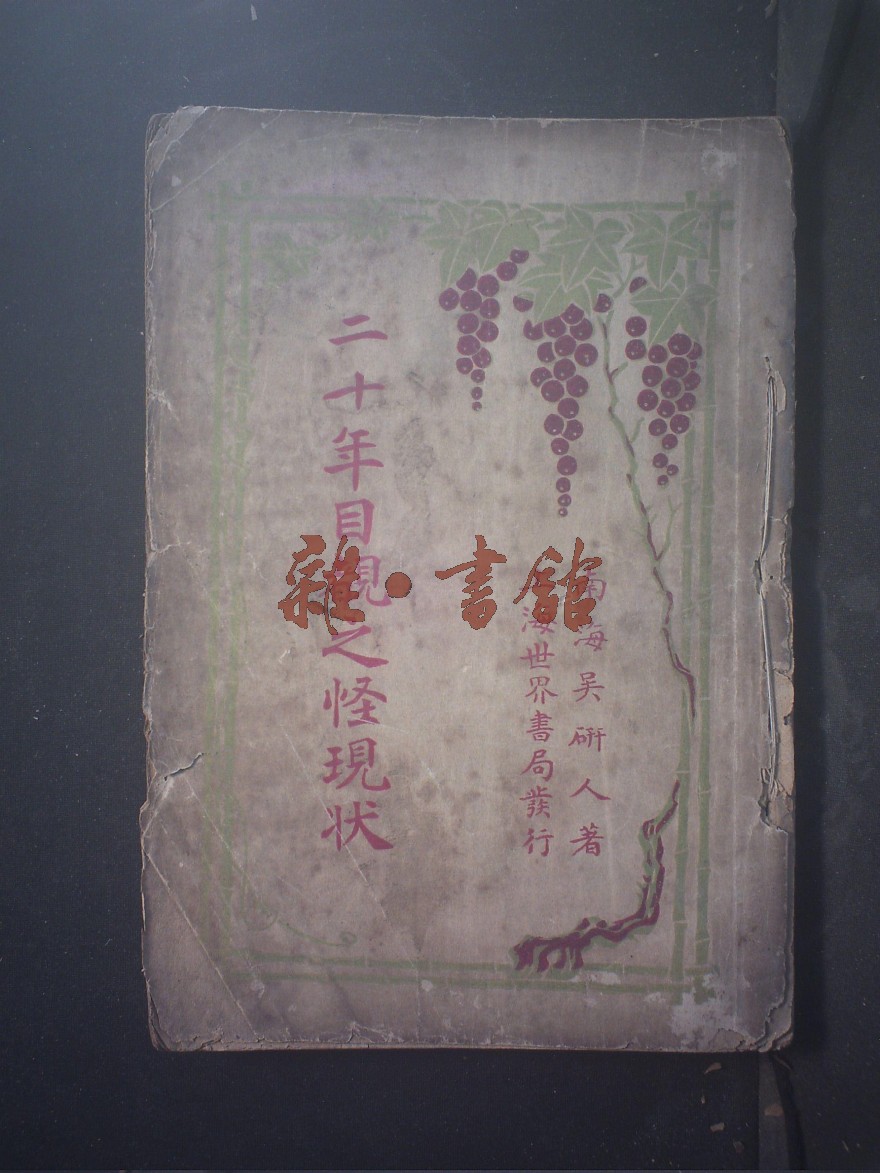 南海吳硏人著
海世界書局發行
二十年目覩之怪現状
雜·書館